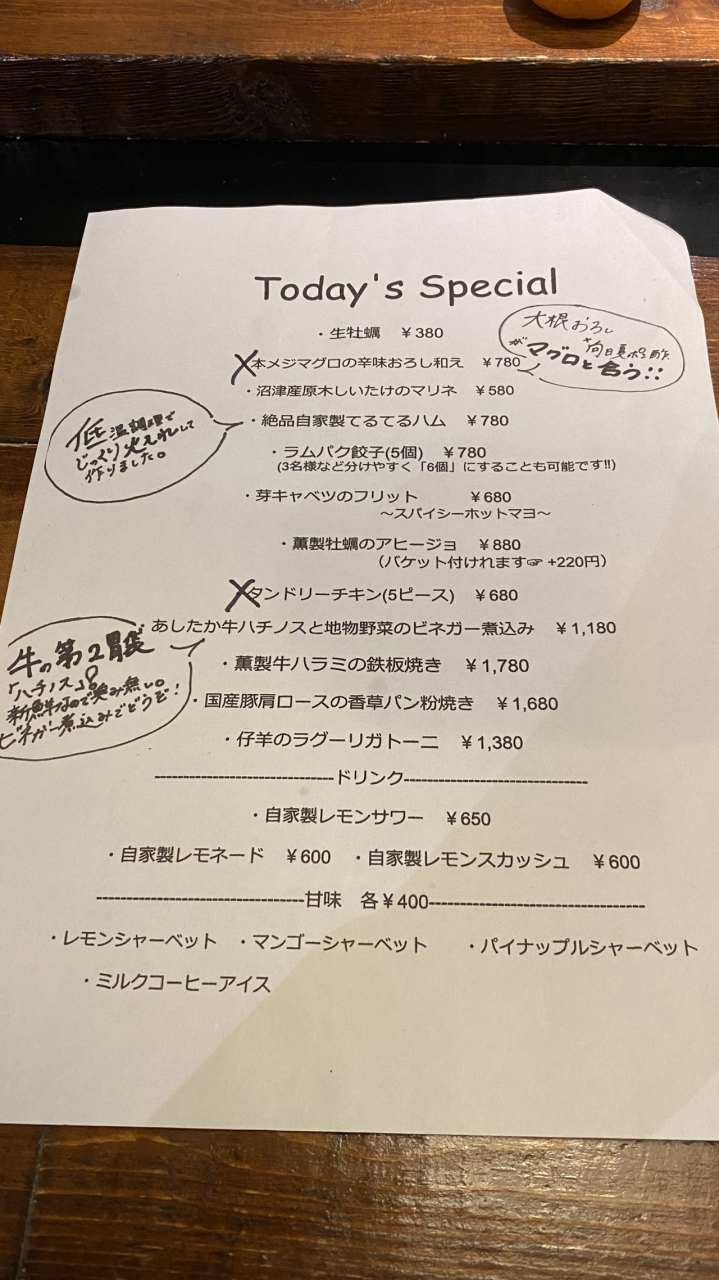 Today's Special
・生牡蠣 ¥380
大根おろし
+向日夏ポン酢
がマグロと合う!!
本メジマグロの辛味おろし和え ¥780
・沼津産原木しいたけのマリネ ¥580
・絶品自家製てるてるハム ¥780
低温調理で
じっくり火入れして
作りました。
・ラムパク餃子(5個) ¥780
(3名様など分けやすく「6個」にすることも可能です!!)
・芽キャベツのフリット ¥680
〜スパイシーホットマヨ〜
・薫製牡蠣のアヒージョ ¥880
(バケット付けれます☞ +220円)
タンドリーチキン(5ピース) ¥680
あしたか牛ハチノスと地物野菜のビネガー煮込み ¥1,180
牛の第2胃袋
「ハチノス」!
新鮮なので臭み無い。
ビネガー煮込みでどうぞ!
・薫製牛ハラミの鉄板焼き ¥1,780
・国産豚肩ロースの香草パン粉焼き ¥1,680
・仔羊のラグーリガトーニ ¥1,380
--------------------------------ドリンク--------------------------------
・自家製レモンサワー ¥650
・自家製レモネード ¥600 ・自家製レモンスカッシュ ¥600
--------------------------------甘味 各¥400---------------------------------
・レモンシャーベット ・マンゴーシャーベット ・パイナップルシャーベット
・ミルクコーヒーアイス